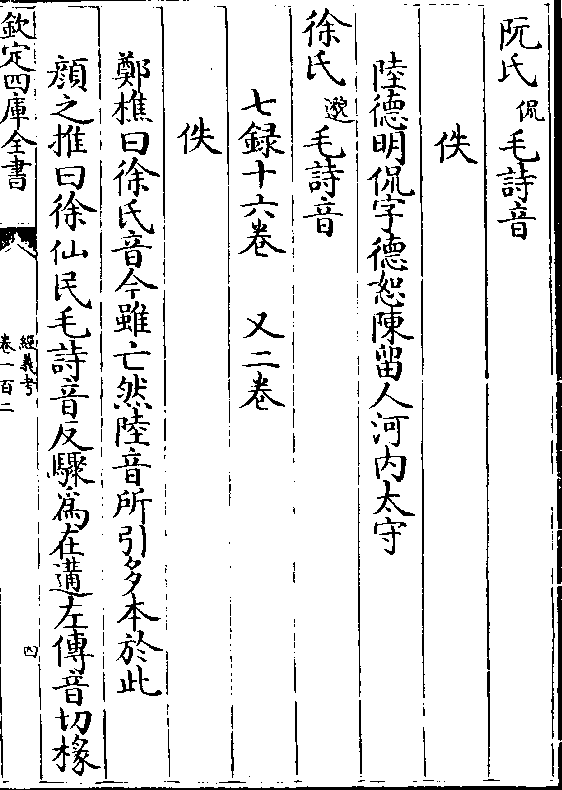 阮氏侃毛詩音
佚
陸德明侃字德恕陳留人河内太守
徐氏邈毛詩音
七録十六卷 又二卷
佚
鄭樵曰徐氏音今雖亡然陸音所引多本於此
顔之推曰徐仙民毛詩音反驟為在遘左傳音切椽
欽定四庫全書
經義考
卷一百二
四